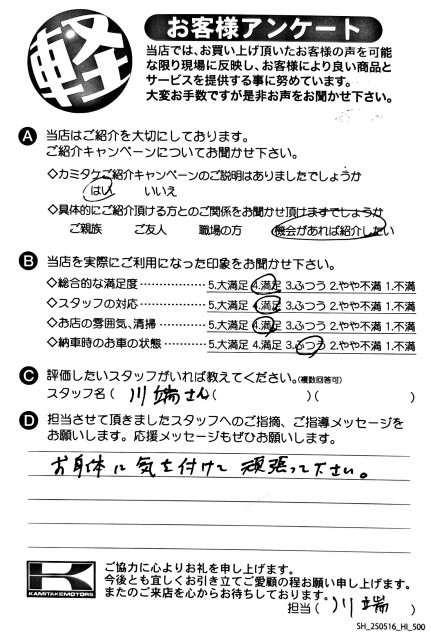 軽
お客様アンケート
当店では、お買い上げ頂いたお客様の声を可能
な限り現場に反映し、お客様により良い商品と
サービスを提供する事に努めています。
大変お手数ですが是非お声をお聞かせ下さい。
A 当店はご紹介を大切にしております。
ご紹介キャンペーンについてお聞かせ下さい。
◇カミタケご紹介キャンペーンのご説明はありましたでしょうか
はい いいえ
◇具体的にご紹介頂ける方とのご関係をお聞かせ頂けますでしょうか
ご親族 ご友人 職場の方 機会があれば紹介したい
B 当店を実際にご利用になった印象をお聞かせ下さい。
◇総合的な満足度…………… 5.大満足 4.満足 3.ふつう 2.やや不満 1.不満
◇スタッフの対応…………… 5.大満足 4.満足 3.ふつう 2.やや不満 1.不満
◇お店の雰囲気、清掃………… 5.大満足 4.満足 3.ふつう 2.やや不満 1.不満
◇納車時のお車の状態………… 5.大満足 4.満足 3.ふつう 2.やや不満 1.不満
C 評価したいスタッフがいれば教えてください。(複数回答可)
スタッフ名( 川端さん )( )( )
D 担当させて頂きましたスタッフへのご指摘、ご指導メッセージを
お願いします。応援メッセージもぜひお願いします。
お身体に気を付けて頑張って下さい。
ご協力に心よりお礼を申し上げます。
今後とも宜しくお引き立てご愛顧の程お願い申し上げます。
またのご来店を心からお待ちしております。
KAMITAKE MOTORS
担当( 川端 )
SH_250516_HI_500